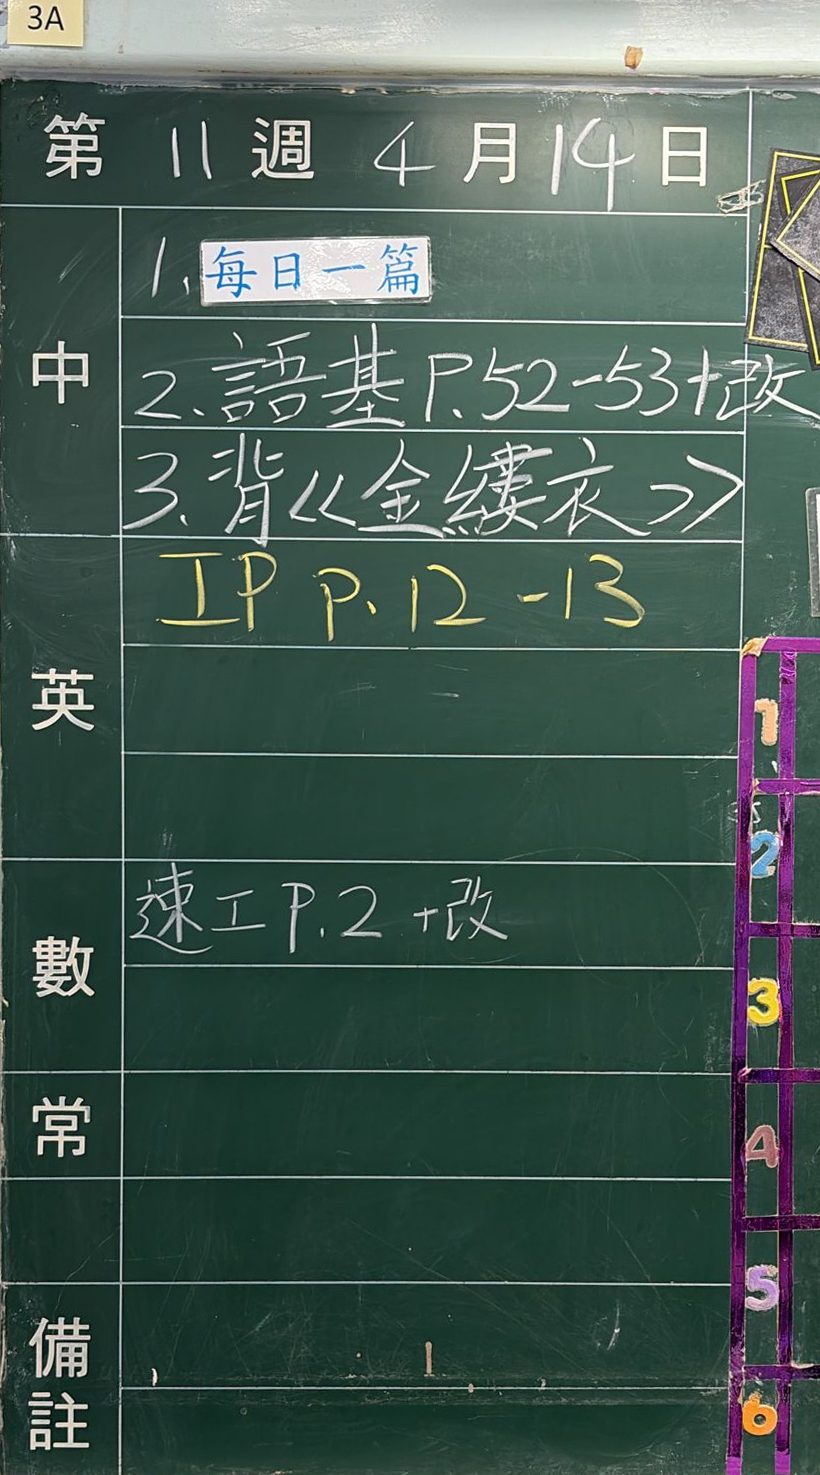 3A
第 11 週 4 月 14 日
中
1. 每日一篇
2. 語基 P.52-53+改
3. 背《金縷衣》
英
IP P. 12 -13
數
速工 P.2 +改
常
備註
1
2
3
4
5
6